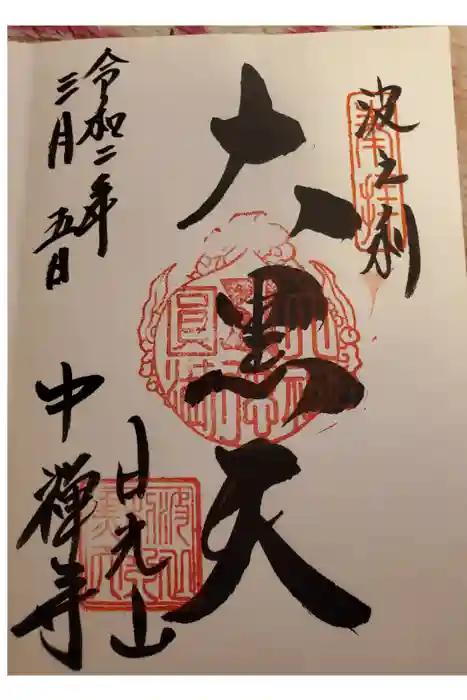 波之利
大黒天
令和二年
三月五日
日光山
中禅寺